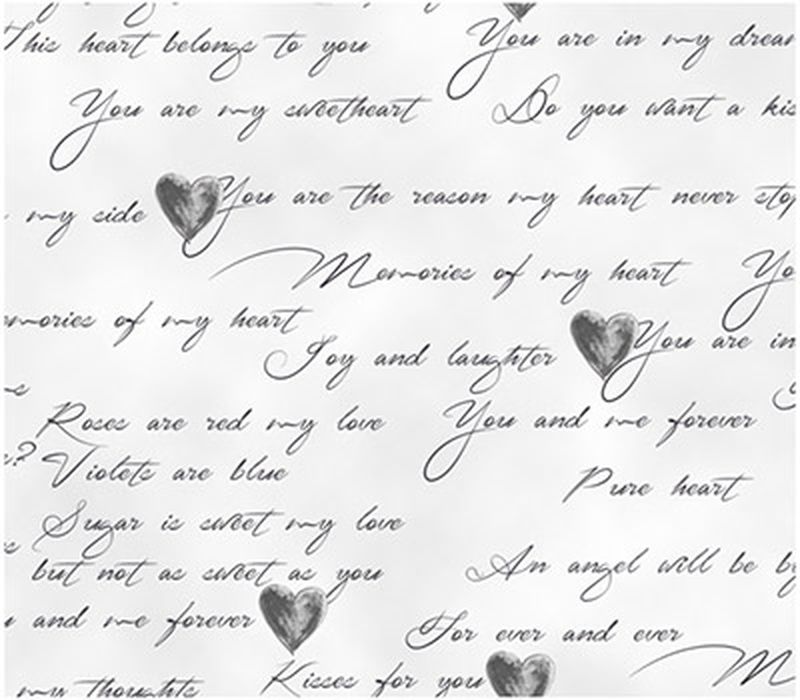 This heart belongs to you
You are in my
You are my sweetheart
Do you want a
my side
You are the reason my heart never
Memories of my heart
of my heart
Joy and laughter
You are in
Roses are red my love
You and me forever
Violets are blue
Pure heart
Sugar is sweet my love
but not as sweet as you
An angel will be
and me forever
For ever and ever
my thoughts
Kisses for you